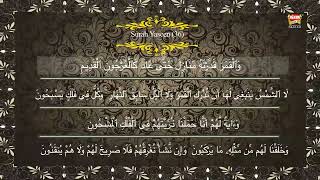 Surah Yaseen (36)
وَالْقَمَرَ قَدَّرْنَاهُ مَنَازِلَ حَتَّىٰ عَادَ كَالْعُرْجُونِ الْقَدِيمِ
لَا الشَّمْسُ يَنبَغِي لَهَا أَن تُدْرِكَ الْقَمَرَ وَلَا اللَّيْلُ سَابِقُ النَّهَارِ وَكُلٌّ فِي فَلَكٍ يَسْبَحُونَ
وَآيَةٌ لَّهُمْ أَنَّا حَمَلْنَا ذُرِّيَّتَهُمْ فِي الْفُلْكِ الْمَشْحُونِ
وَخَلَقْنَا لَهُم مِّن مِّثْلِهِ مَا يَرْكَبُونَ وَإِن نَّشَأْ نُغْرِقْهُمْ فَلَا صَرِيخَ لَهُمْ وَلَا هُمْ يُنقَذُونَ